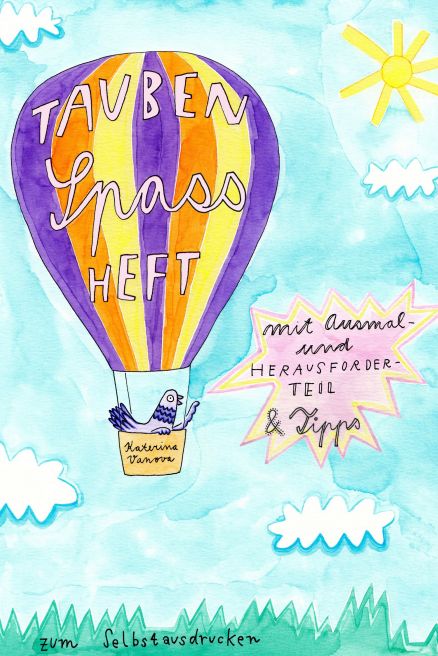 TAUBEN
Spass
HEFT
mit Ausmal-
und
HERAUSFORDER-
TEIL
& Tipps
Katerina
Vanova
zum Selbstausdrucken